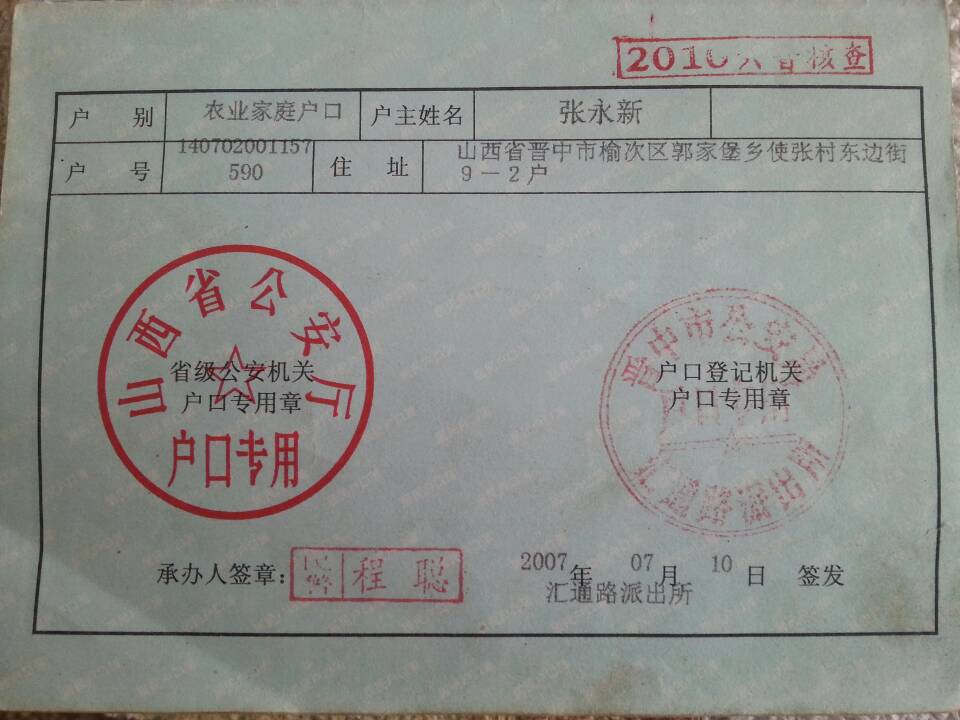 2010
核查
户 别 农业家庭户口 户主姓名 张永新
户 号 140702001157590 住 址 山西省晋中市榆次区郭家堡乡使张村东边街9－2户
山西省公安厅
省级公安机关
户口专用章
户口专用
晋中市公安局
户口登记机关
户口专用章
汇通路派出所
承办人签章： 程聪
2007年 07月 10日 签发
汇通路派出所